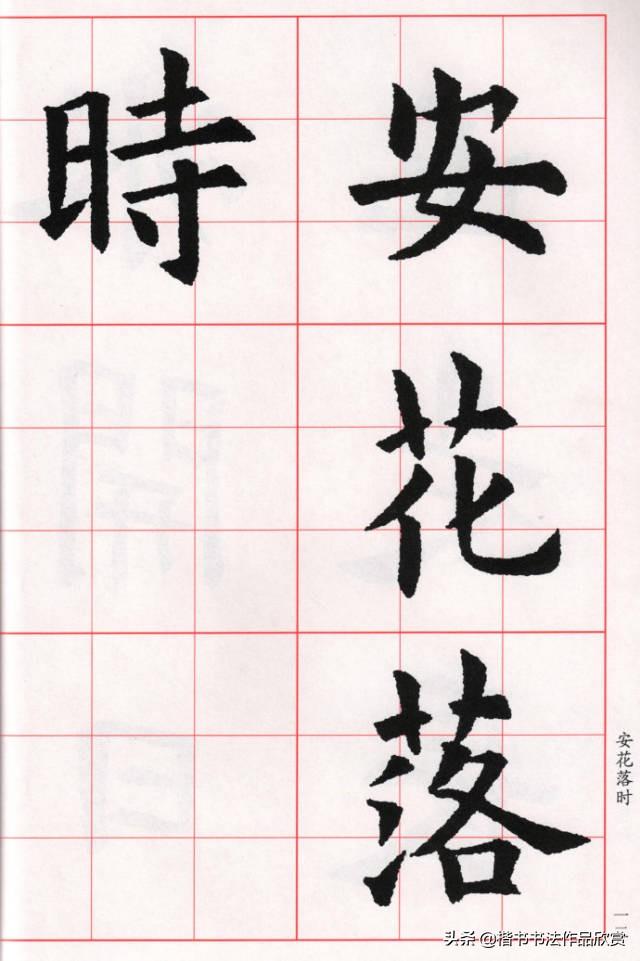 安花落
時
安花落时
头条 @楷书书法作品欣赏